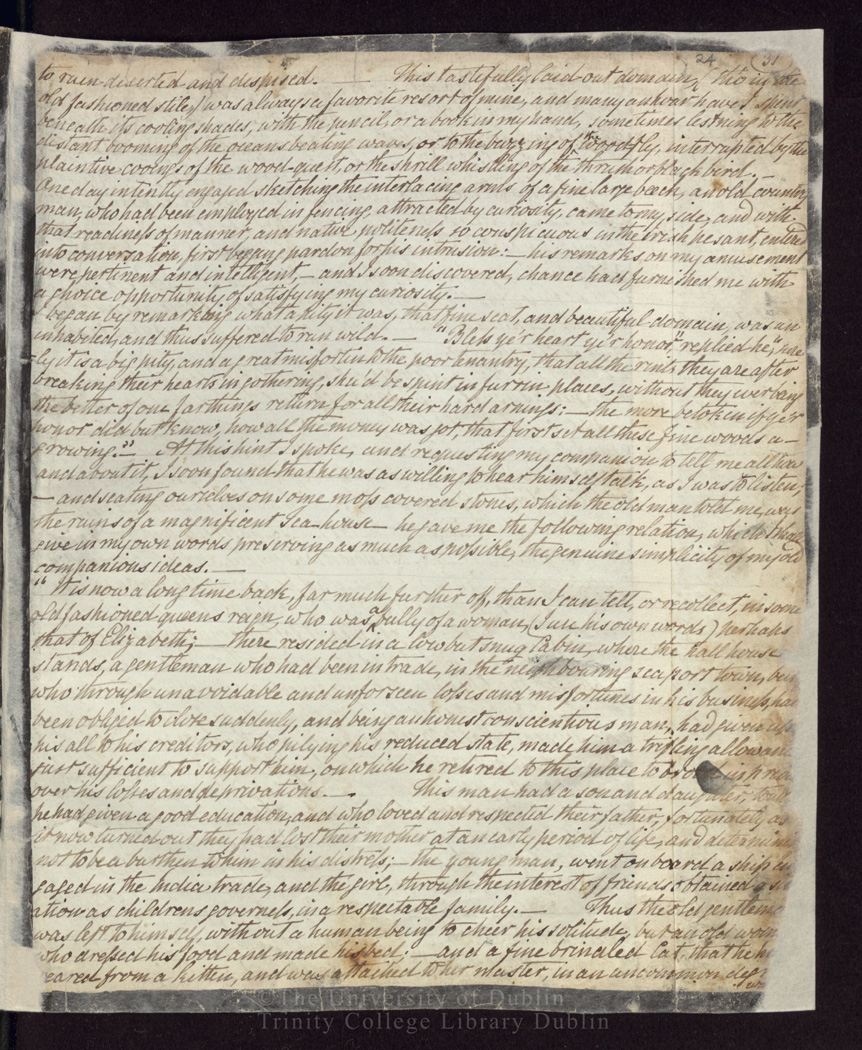 24 31
to ruin deserted and despised. — This tastefully laid out domain, tho' in the
old fashioned stile, was always a favorite resort of mine, and many an hour have I spent
beneath its cooling shades, with the pencil, or a book in my hand, sometimes listning to the
distant booming of the oceans beating waves, or to the buzzing of woodfly, interrupted by the
plaintive cooings of the wood-quest, or the shrill whistling of the thrush or blackbird. —
One day intently engaged sketching the interlacing arms of a fine large beech, an old country
man, who had been employed in fencing, attracted by curiosity, came to my side, and with
that readiness of manner, and native politeness so conspicuous in the irish pesant, entered
into conversation, first begging pardon for his intrusion: — his remarks on my amusement
were pertinent and intelligent, — and I soon discovered, chance had furnished me with
a choice opportunity, of satisfying my curiosity. —
I began by remarking what a pity it was, that fine seat, and beautiful domain, was un
inhabited, and thus suffered to run wild. — "Bless ye'r heart ye'r honor" replied he,
ly it is a big pity, and a great misfortin to the poor tenantry, that all the rints they are after
breaking their hearts in gothering, shu'd be spint in furrin places, without they ver being
the better of one farthings return for all their hard arnings: — the more betoken if ye'r
honor did but know, how all the money was got, that first set all these fine woods a-
growing." — At this hint I spoke, and requesting my companion to tell me all
and about it, I soon found that he was as willing to hear himself talk, as I was to listen,
— and seating ourselves on some moss covered stones, which the old man told me, were
the ruins of a magnificent tea-house — he gave me the following relation, which I shall
give in my own words preserving as much as possible, the genuine simplicity of my old
companions ideas. —
"It is now a long time back, far much further off, than I can tell, or recollect, in some
old fashioned queens reign, who was a bully of a woman, (I use his own words) perhaps
that of Elizabeth; — there resided in a low but snug Cabin, where the hall house
stands, a gentleman who had been in trade, in the neighbouring seaport town, but
who through unavoidable and unforseen losses and misfortunes in his business, had
been obliged to close suddenly, and being an honest conscientious man, had given up
his all to his creditors, who pitying his reduced state, made him a trifling allowance
just sufficient to support him, on which he retired to this place to
over his losses and deprivations. — This man had a son and daughter, to
he had given a good education, and who loved and respected their father, fortunately as
it now turned out they had lost their mother at an early period of life, and determined
not to be a burthen to him in his distress; — the young man, went on board a ship en
gaged in the India trade, and the girl, through the interest of friends obtained a situ
ation as childrens governess, in a respectable family. — Thus the old gentleman
was left to himself, without a human being to cheer his solitude, but an old woman
who dressed his food and made his bed; — and a fine brindled Cat, that he had
reared from a kitten, and was attached to her master, in an uncommon degree
© The University of Dublin
Trinity College Library Dublin